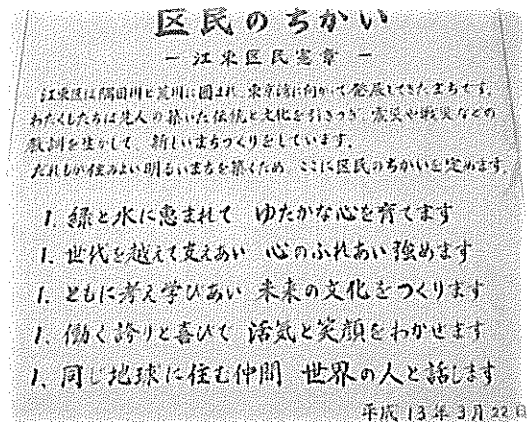 区民のちかい
― 江東区民憲章 ―
江東区は隅田川と荒川に囲まれ 東京湾に向かって発展してきたまちです。
わたくしたちは先人の築いた伝統と文化を引きつぎ 震災や戦災などの
教訓を生かして 新しいまちづくりをしています。
だれもが住みよい明るいまちを築くため ここに区民のちかいを定めます。
1. 緑と水に恵まれて ゆたかな心を育てます
1. 世代を越えて支えあい 心のふれあい強めます
1. ともに考え学びあい 未来の文化をつくります
1. 働く誇りと喜びで 活気と笑顔をわかせます
1. 同じ地球に住む仲間 世界の人と話します
平成13年3月22日